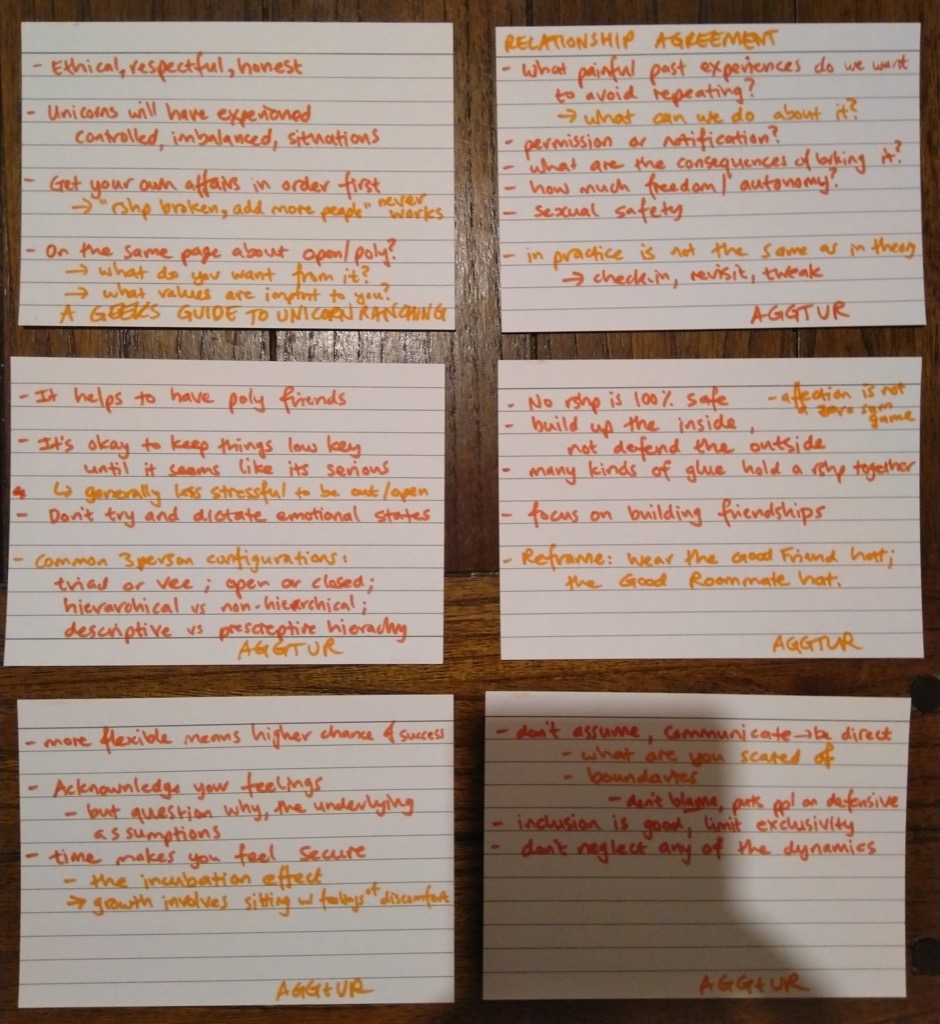 - Ethical, respectful, honest
- Unicorns will have experienced
controlled, imbalanced, situations
- Get your own affairs in order first
→ "rshp broken, add more people" never works
- On the same page about open/poly?
→ what do you want from it?
→ what values are imptnt to you?
A GEEKS GUIDE TO UNICORN RANCHING
RELATIONSHIP AGREEMENT
- What painful past experiences do we want
to avoid repeating?
→ what can we do about it?
- permission or notification?
- what are the consequences of brking it?
- how much freedom/autonomy?
- sexual safety
- in practice is not the same as in theory
→ check.in, revisit, tweak
AGGTUR
- It helps to have poly friends
- It's okay to keep things low key
until it seems like its serious
↳ generally less stressful to be out/open
- Don't try and dictate emotional states
- Common 3 person configurations:
triad or vee; open or closed;
hierarchical vs non-hierarchical;
descriptive vs prescreptive hierachy
AGGTUR
- No rshp is 100% safe
- affection is not
a zero sum
game
- build up the inside,
not defend the outside
- many kinds of glue hold a rshp together
- focus on building friendships
- Reframe: wear the Good Friend hat;
the Good Roommate hat.
AGGTUR
- more flexible means higher chance of success
- Acknowledge your feelings
- but question why, the underlying
assumptions
- time makes you feel secure
- the incubation effect
→ growth involves sitting w feelings of discomfort
AGGtUR
- don't assume, communicate → be direct
- what are you scared of
- boundaries
- don't blame, puts ppl on defensive
- inclusion is good, limit exclusivity
- don't neglect any of the dynamics
AGGtUR